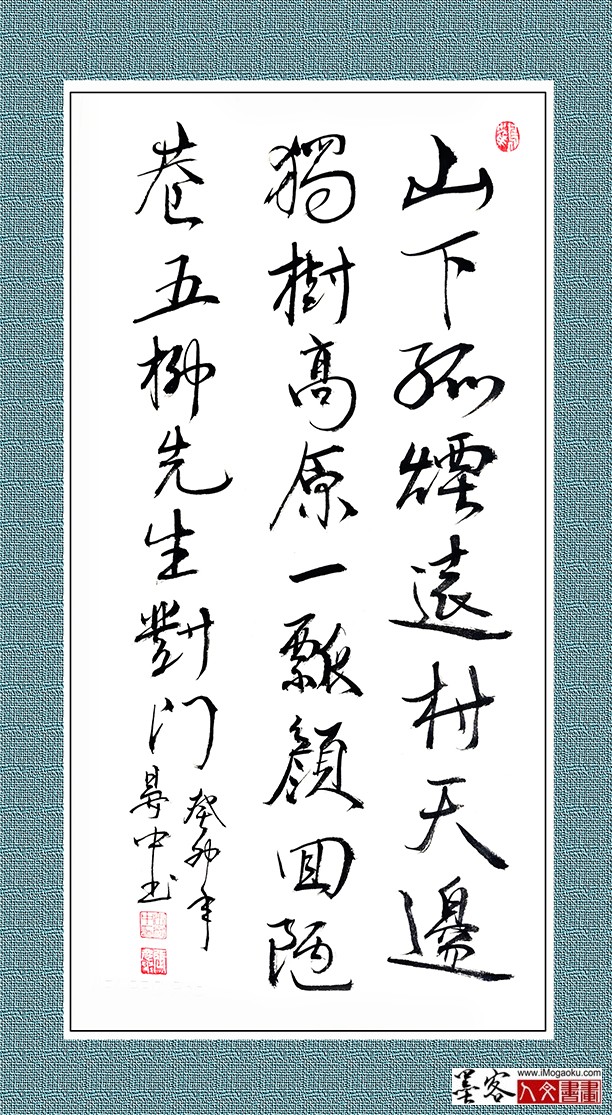 山下孤煙遠村天邊
獨樹高原一瓢顏回陋
巷五柳先生對门
癸卯年
中书
墨客
www.iMogaoku.com
人文書畫